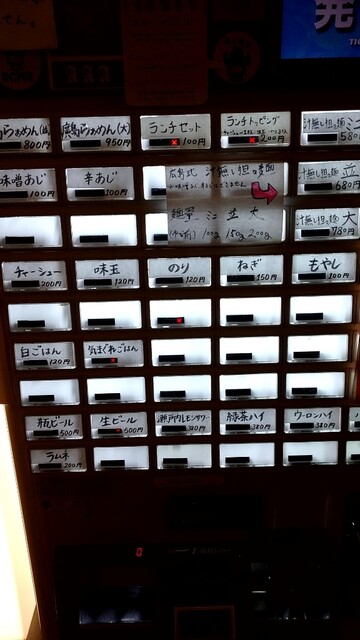 島らぁめん(並)
800円
広島らぁめん(大)
950円
ランチセット
100円
ランチトッピング
200円
汁無し担々麺ミニ
580
味噌あじ
100円
辛あじ
100円
広島式 汁無し担々麺
麺量 ミニ 並 大
100g 150g 200g
汁無し担々麺 並
680円
汁無し担々麺 大
780円
チャーシュー
200円
味玉
120円
のり
120円
ねぎ
150円
もやし
100円
白ごはん
120円
気まぐれごはん
瓶ビール
500円
生ビール
500円
瀬戸内レモンサワー
380円
緑茶ハイ
380円
ウーロンハイ
380円
ラムネ
200円
0